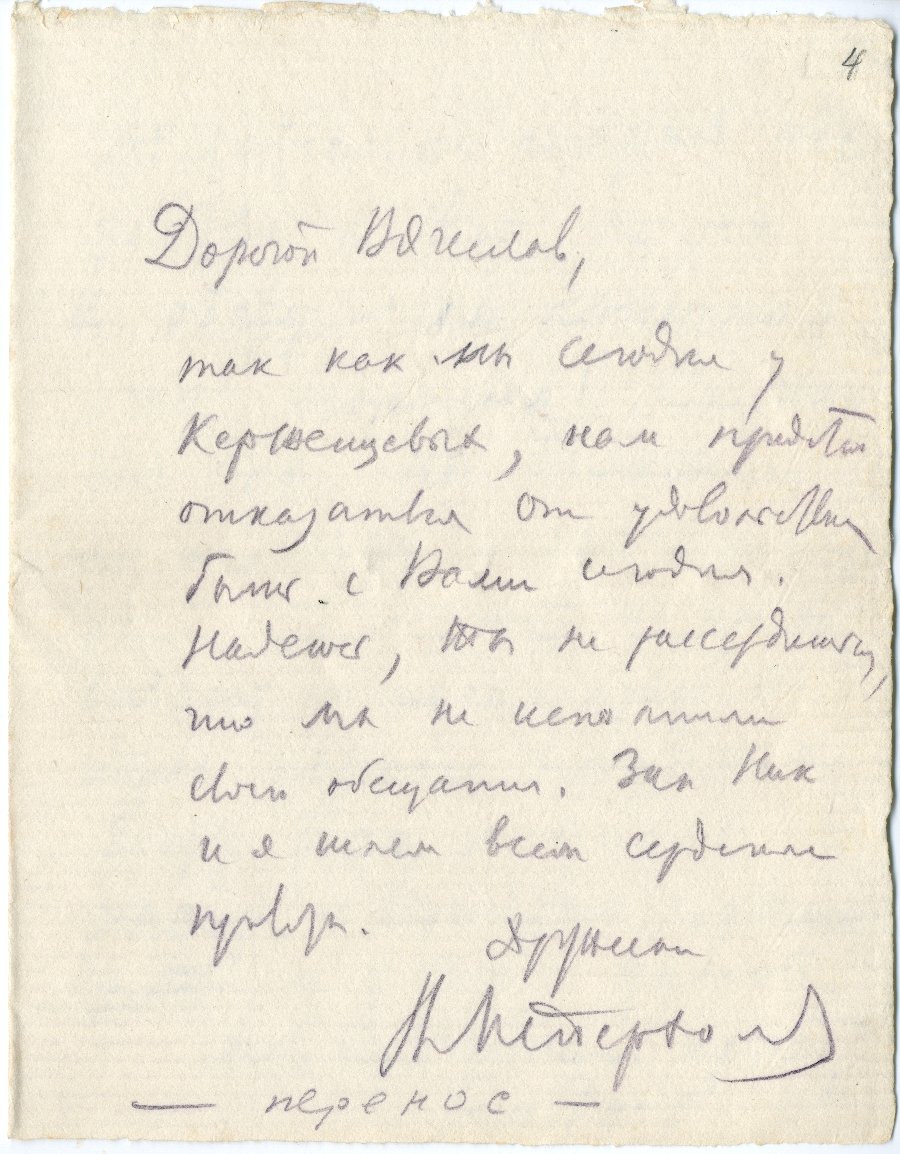 4
Дорогой Вячеслав,
так как мы сегодня у
Керженцевых, нам придётся
отказаться от удовольствия
быть с Вами сегодня.
Надеюсь, ты не рассердишься,
что мы не исполнили
своего обещания. Зин Ник
и я шлем всем сердечные
приветы.
Дружески
В Мейерхольд
— перенос —